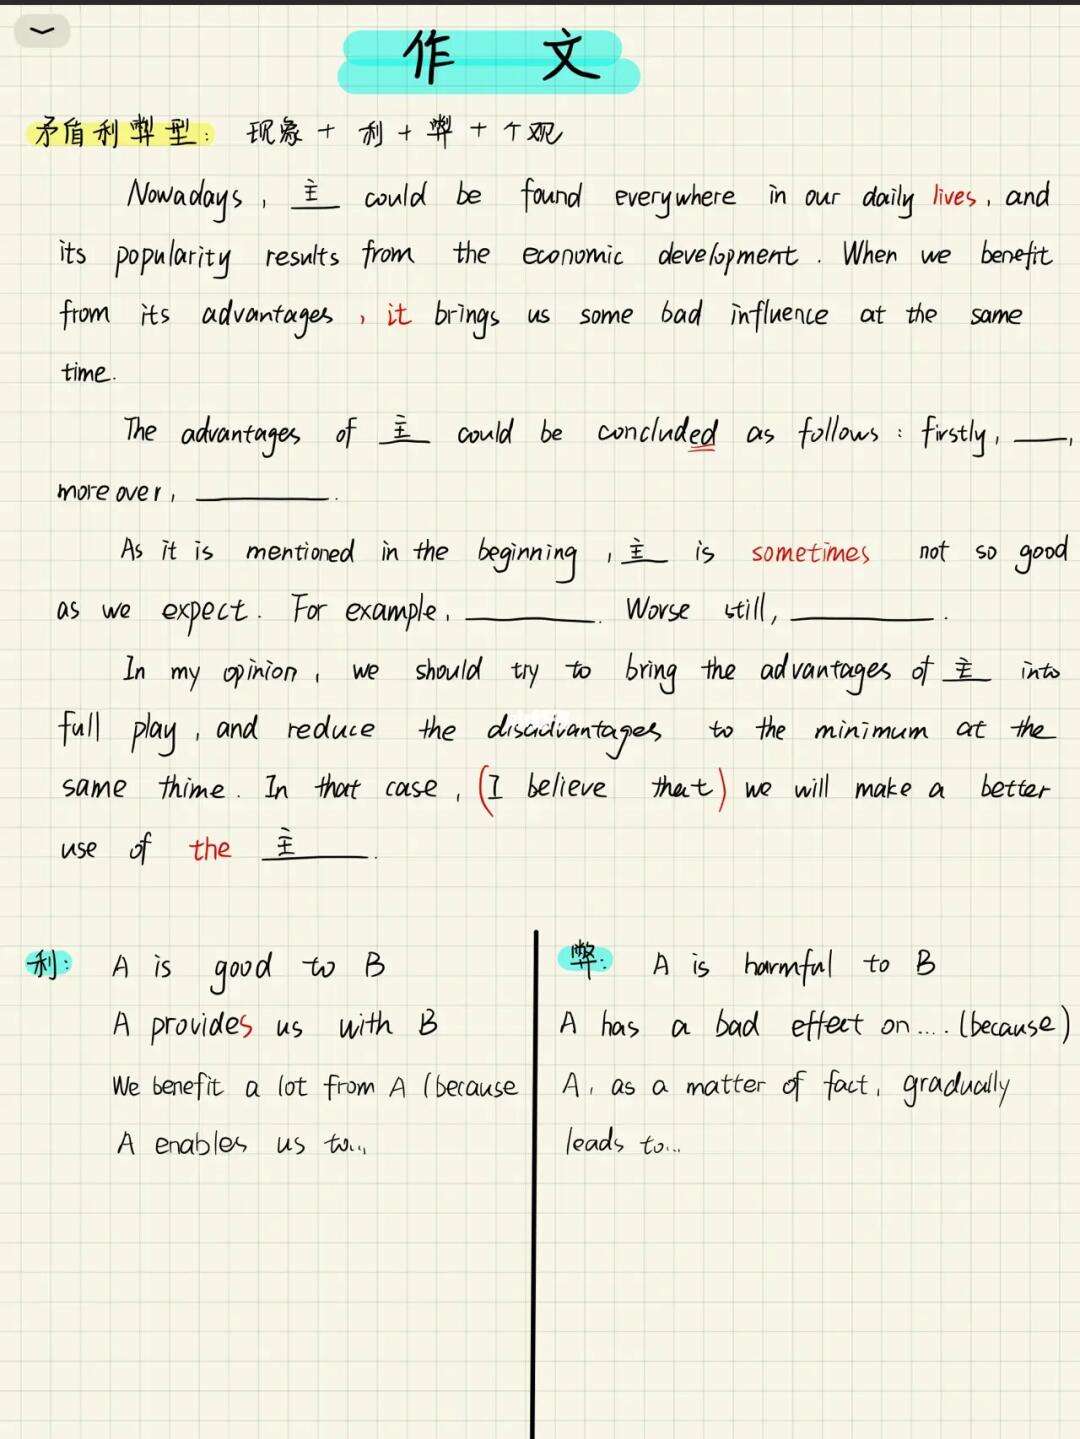 作 文
矛盾利弊型: 现象 + 利 + 弊 + 个观
Nowadays, 主 could be found everywhere in our daily lives, and
its popularity results from the economic development. When we benefit
from its advantages, it brings us some bad influence at the same
time.
The advantages of 主 could be concluded as follows: firstly, ___,
moreover, ______.
As it is mentioned in the beginning, 主 is sometimes not so good
as we expect. For example, ______. Worse still, ______.
In my opinion, we should try to bring the advantages of 主 into
full play, and reduce the disadvantages to the minimum at the
same thime. In that case, (I believe that) we will make a better
use of the 主____.
利: A is good to B
A provides us with B
We benefit a lot from A (because
A enables us to...
弊: A is harmful to B
A has a bad effect on.... (because)
A, as a matter of fact, gradually
leads to...